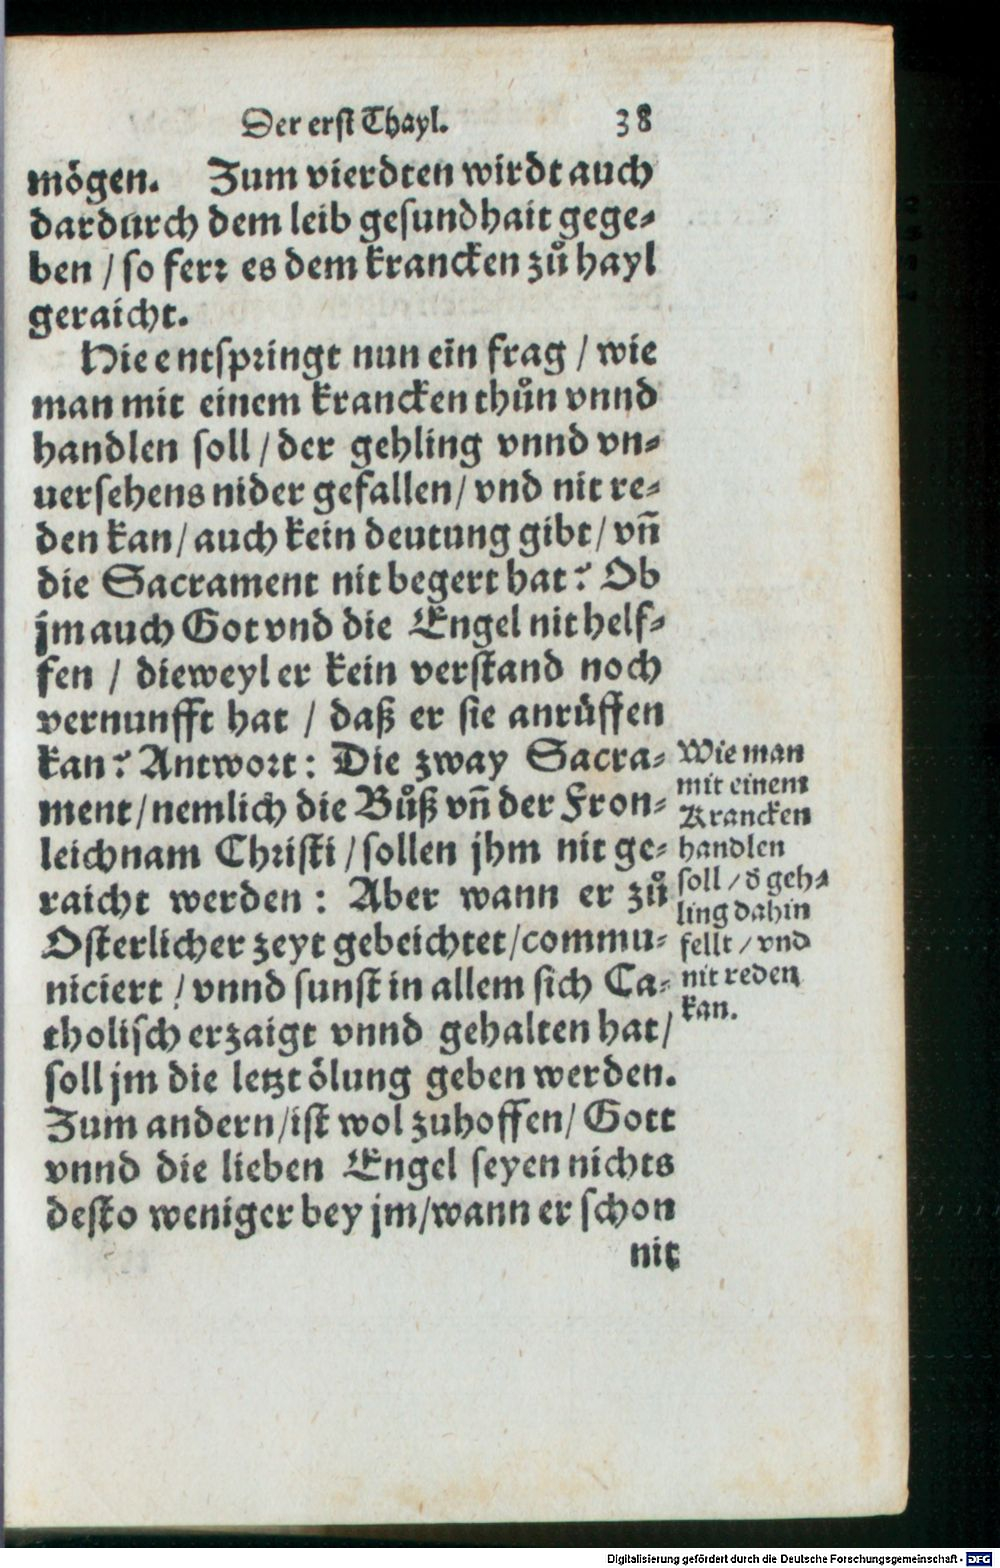 Der erst Thayl. 38
mögen. Zum vierdten wirdt auch
dardurch dem leib gesundhait gege⸗
ben / so ferr es dem krancken zů hayl
geraicht.
Hie entspringt nun ein frag / wie
man mit einem krancken thůn vnnd
handlen soll / der gehling vnnd vn⸗
uersehens nider gefallen / vnd nit re⸗
den kan / auch kein deutung gibt / vñ
die Sacrament nit begert hat? Ob
jm auch Got vnd die Engel nit helf⸗
fen / dieweyl er kein verstand noch
vernunfft hat / daß er sie anrüffen
kan? Antwort: Die zway Sacra⸗
ment / nemlich die Bůß vñ der Fron⸗
leichnam Christi / sollen jhm nit ge⸗
raicht werden: Aber wann er zů
Osterlicher zeyt gebeichtet / commu⸗
niciert / vnnd sunst in allem sich Ca⸗
tholisch erzaigt vnnd gehalten hat /
soll jm die letzt ölung geben werden.
Zum andern / ist wol zuhoffen / Gott
vnnd die lieben Engel seyen nichts
desto weniger bey jm / wann er schon
nit
Wie man
mit einem
Krancken
handlen
soll / d̕ geh⸗
ling dahin
fellt / vnd
nit reden
kan.
Digitalisierung gefördert durch die Deutsche Forschungsgemeinschaft - DFG